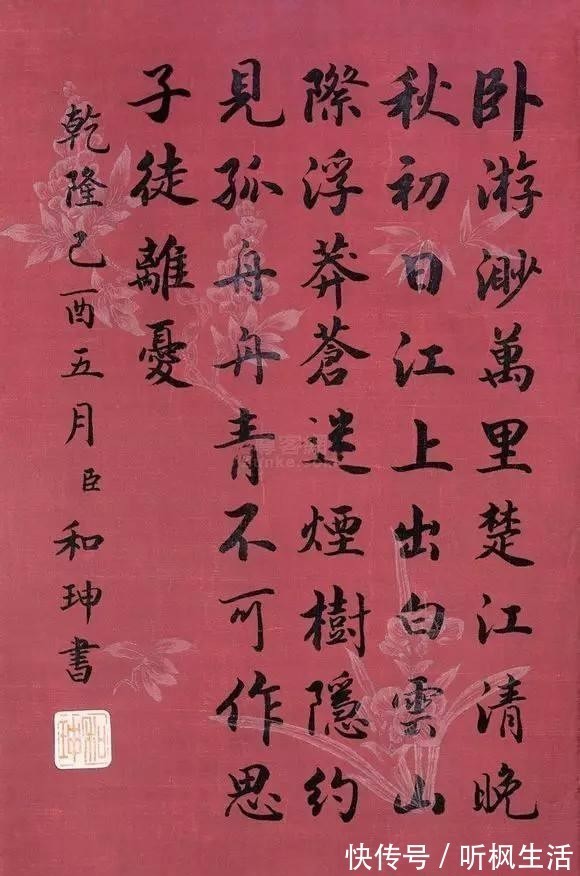 卧游渺萬里楚江清晚
秋初日江上出白雲山
際浮莽蒼迷煙樹隱約
見孤舟舟青不可作思
子徒離憂
乾隆己酉五月臣和珅書
快传号/听枫生活